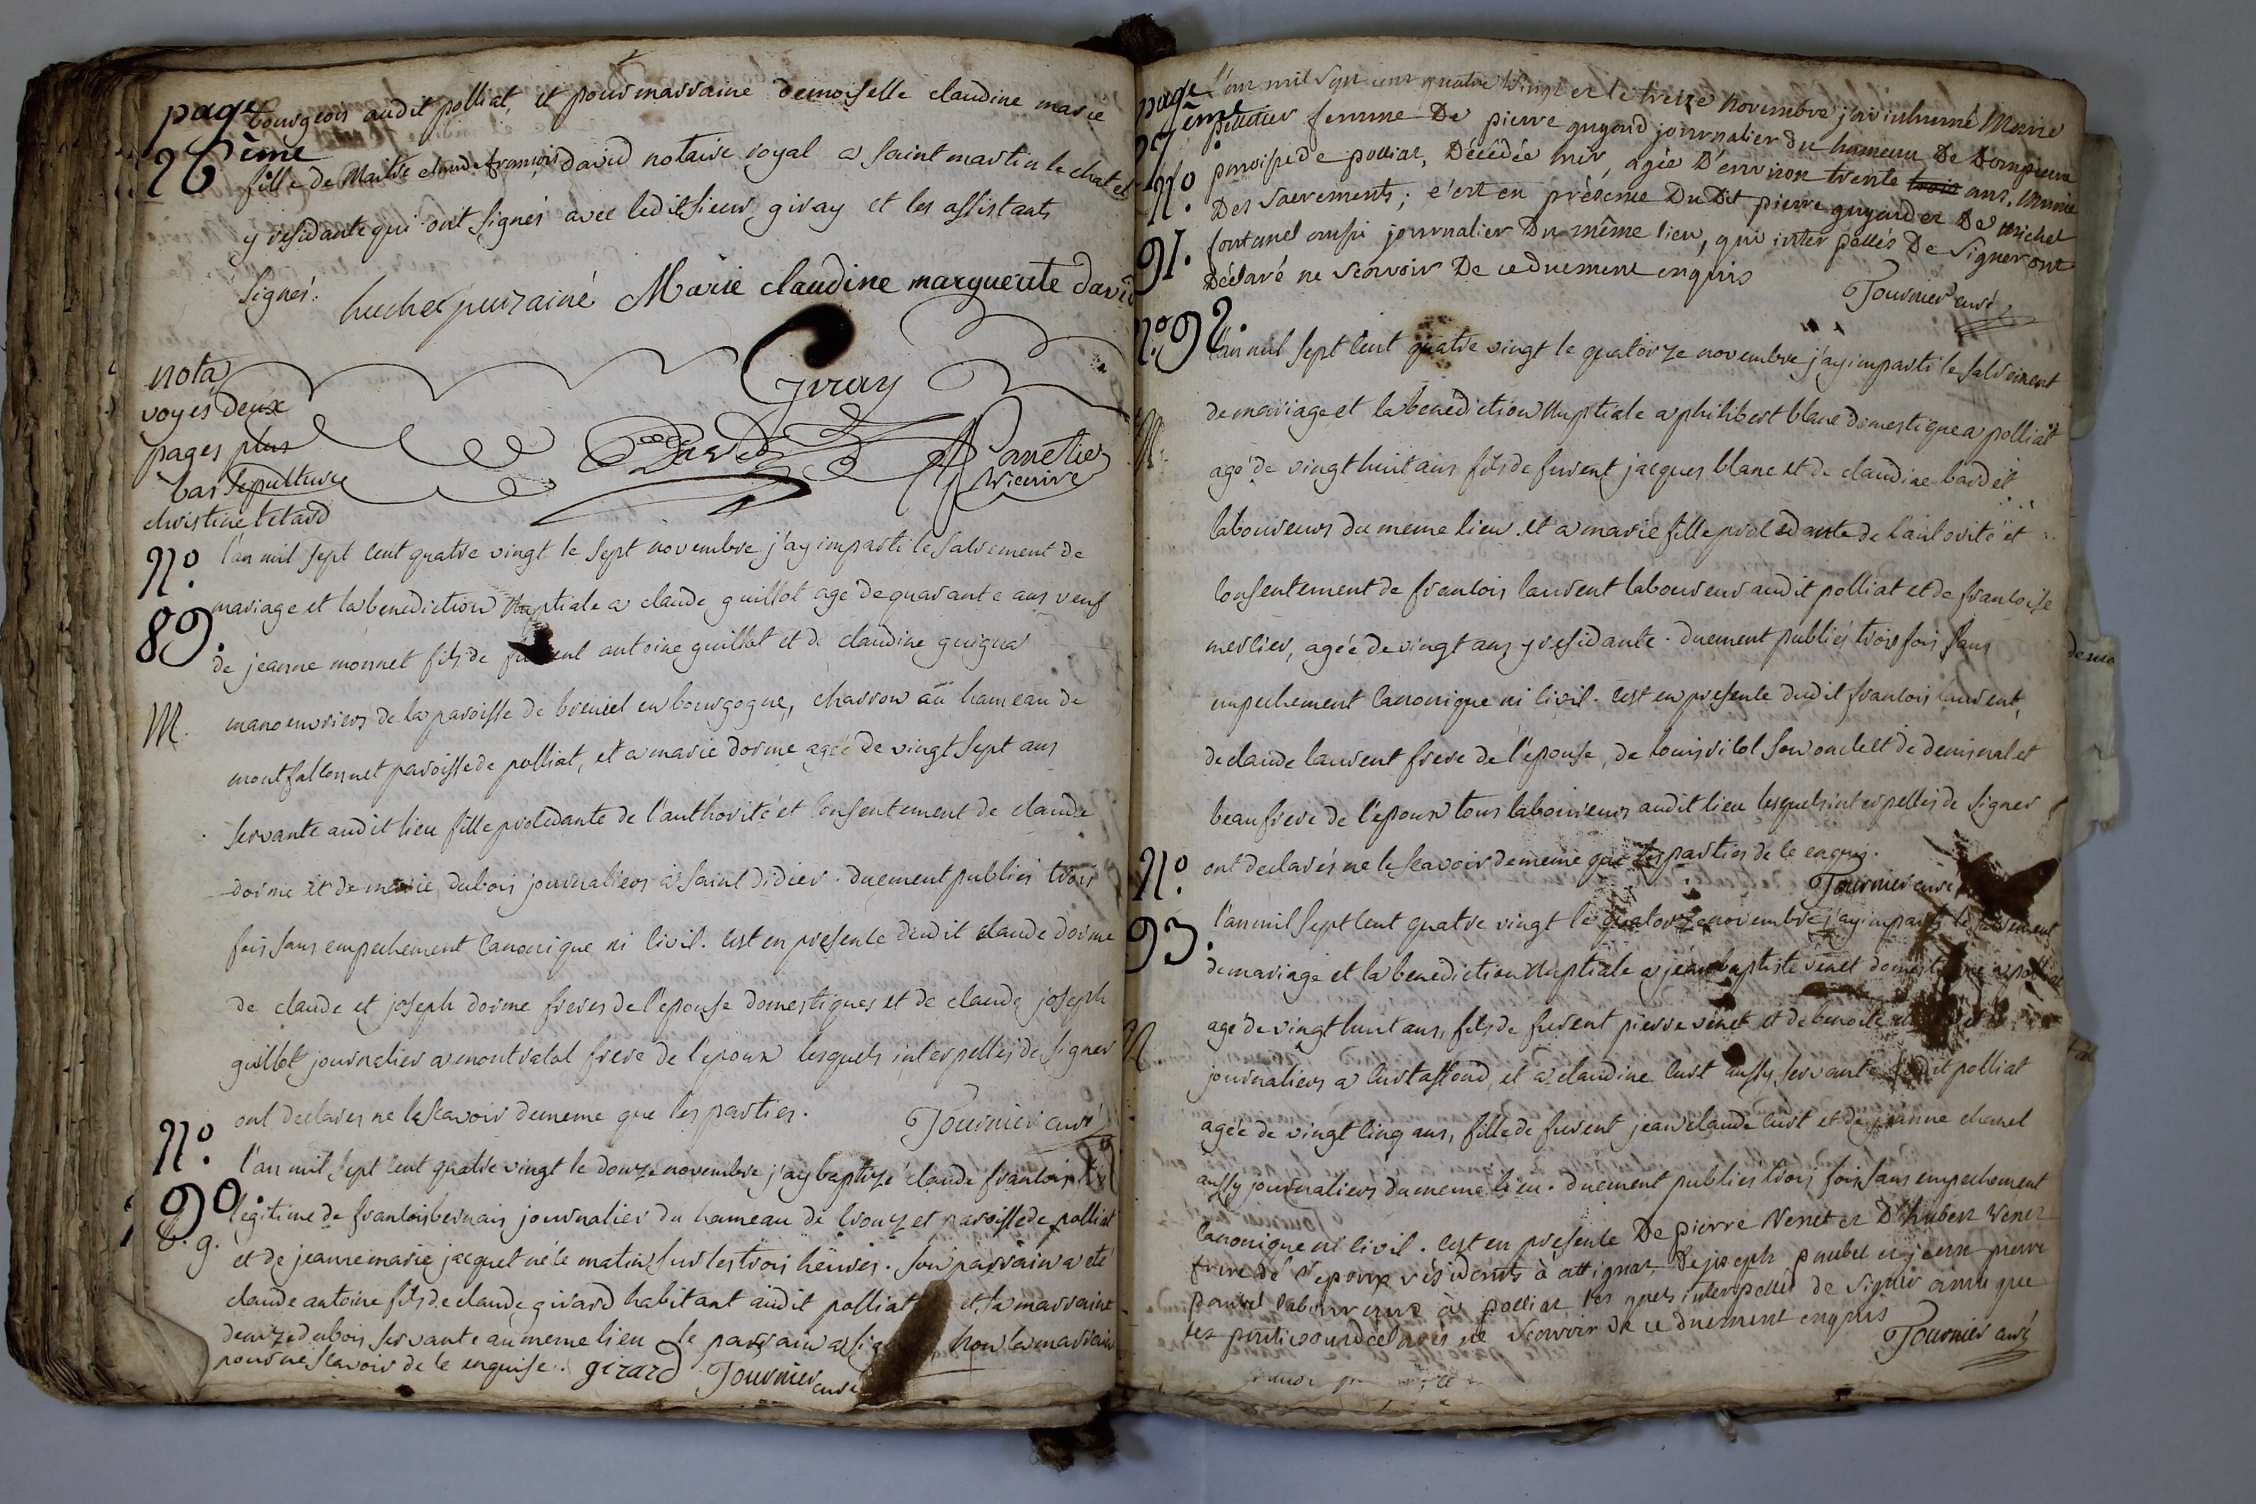 page
26ème
bourgeois audit polliat, et pour marraine demoiselle claudine marie
fille de Maitre claude françois david notaire royal a saint martin le chatel
y residante qui ont signés avec ledit sieur giray et les assistants
signés.
Marie claudine marguerite david
Giray
David
vicaire
nota
voyés deux
pages plus
bas sepulture
christine tetard
N°
89.
M.
l'an mil sept cent quatre vingt le sept novembre j'ay imparti le sacrement de
mariage et la benediction nuptiale a claude guillot agé de quarante ans veuf
de jeanne monnet fils de furent antoine guillot et de claudine
manoeuvriers de la paroisse de en bourgogne, charron au hameau de
montfalconnet paroisse de polliat, et a marie dorme agée de vingt sept ans
servante audit lieu fille procedante de l'authorité et consentement de claude
dorme et de marie dubois journaliers a saint didier. duement publiés trois
fois sans empechement canonique ni civil. c'est en presence dudit claude dorme
de claude et joseph dorme freres de l'epouse domestiques et de claude joseph
guillot journalier a frere de l'epoux lesquels interpellés de signer
ont declarés ne le scavoir de meme que les parties.
Tournier curé
N°
90.
B. g.
l'an mil sept cent quatre vingt le douze novembre j'ay baptizé claude françois fils
legitime de françois bernais journalier du hameau de paroisse de polliat
et de jeanne marie jacquet né le matin sur les trois heures. son parrain a été
claude antoine fils de claude girard habitant audit polliat et la marraine
denize dubois servante au meme lieu le parrain a signé non la marraine
pour ne scavoir de ce enquise. girard Tournier curé
page
27ème
N°
91.
l'an mil sept cent quatre vingt et le treize novembre j'ai inhumé Marie
pelletier femme De pierre guyard journalier du hameau De Dompierre
paroisse de polliat, Décédée hier, agée D'environ trente trois ans, Munie
Des sacrements; c'est en présence Du Dit pierre guyard et De michel
fontanel aussi journalier Du même lieu, qui interpellés De signer ont
Déclaré ne scavoir De ce duement enquis
Tournier curé
N° 92.
M.
l'an mil sept cent quatre vingt le quatorze novembre j'ay imparti le sacrement
de mariage et la benediction nuptiale a philibert blanc domestique a polliat
agé de vingt huit ans fils de furent jacques blanc et de claudine bardet
laboureurs du meme lieu. et a marie fille procedante de l'autorité et
consentement de françois laurent laboureur audit polliat et de françoise
merlier, agée de vingt ans y residante. duement publiés trois fois sans
empechement canonique ni civil. c'est en presence dudit françois laurent,
de claude laurent frere de l'epouse, de louis vilol son oncle et de denis nalet
beaufrere de l'epoux tous laboureurs audit lieu lesquels interpellés de signer
ont declarés ne le scavoir de meme que les parties de ce enquis.
Tournier curé
N°
93.
M.
l'an mil sept cent quatre vingt le quatorze novembre j'ay imparti le sacrement
de mariage et la benediction nuptiale a jean baptiste venet domestique a polliat
agé de vingt huit ans, fils de furent pierre venet et de benoite
journaliers a curtafond, et a claudine curt aussy servante audit polliat
agée de vingt cinq ans, fille de furent jean claude curt et de jeanne chanel
aussy journaliers du meme lieu. duement publiés trois fois sans empechement
canonique ni civil. c'est en presence De pierre Venet et D'hubert Venet
frere de l'epoux résidants à attignat De joseph paubel et jean pierre
paubel laboureurs à polliat les quels interpellés de signer ainsi que
les parties ont déclarés ne scavoir de ce duement enquis
Tournier curé